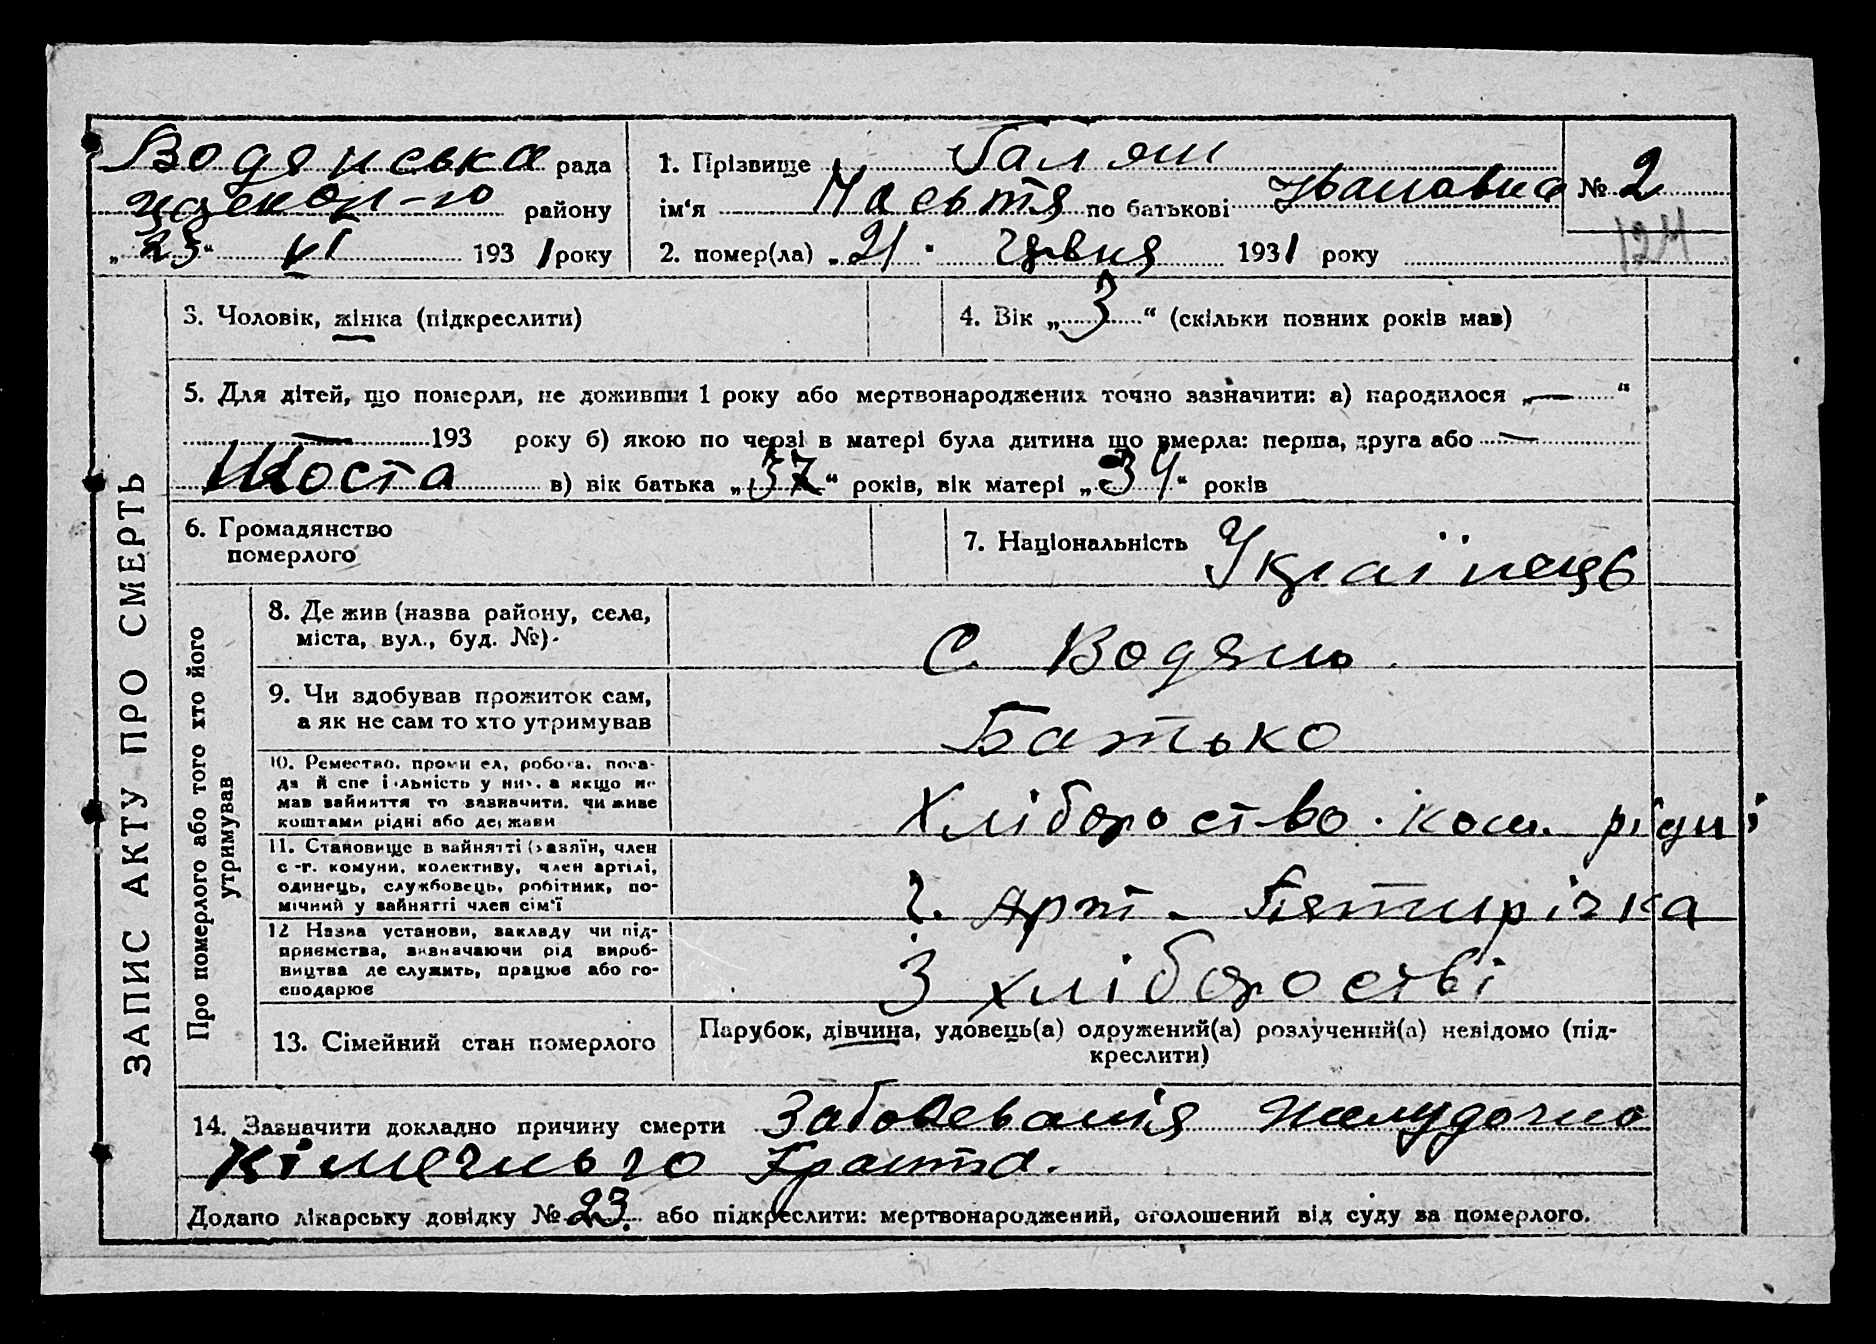 ЗАПИС АКТУ ПРО СМЕРТЬ
Водянська рада
району
„23“ VI 1931 року
1. Прізвище Галян
ім‘я Настя по батькові Івановна
2. помер(ла) „21“ червня 1931 року
№ 2
124
3. Чоловік, жінка (підкреслити)
4. Вік „3“ (скільки повних років мав)
5. Для дітей, що померли, не доживши 1 року або мертвонароджених точно зазначити: а) народилося „—“
— 193 року б) якою по черзі в матері була дитина що вмерла: перша, друга або —
Шоста в) вік батька „37“ років, вік матері „34“ років
6. Громадянство
померлого
7. Національність Українець
Про померлого або того хто його
утримував
8. Де жив (назва району, села,
міста, вул., буд. №)
с. Водяно
9. Чи здобував прожиток сам,
а як не сам то хто утримував
Батько
10. Ремество, промисел, робота, поса-
да й спеціяльність у них, а якщо не
мав зайняття то зазначити, чи живе
коштами рідні або держави
Хліборобство. кош. рідні
11. Становище в зайнятті (хазяїн, член
с.-г. комуни, колективу, член артілі,
одинець, службовець, робітник, по-
мічний у зайнятті член сім'ї
ч. Арт. Пятирічка
12 Назва установи, закладу чи під-
приємства, визначаючи рід вироб-
ництва де служить, працює або го-
сподарює
З хліборостві
13. Сімейний стан померлого
Парубок, дівчина, удовець(а) одружений(а) розлучений(а) невідомо (під-
креслити)
14. Зазначити докладно причину смерти Заболеванія желудочно
кішечного тракта.
Додано лікарську довідку № 23. або підкреслити: мертвонароджений, оголошений від суду за померлого.